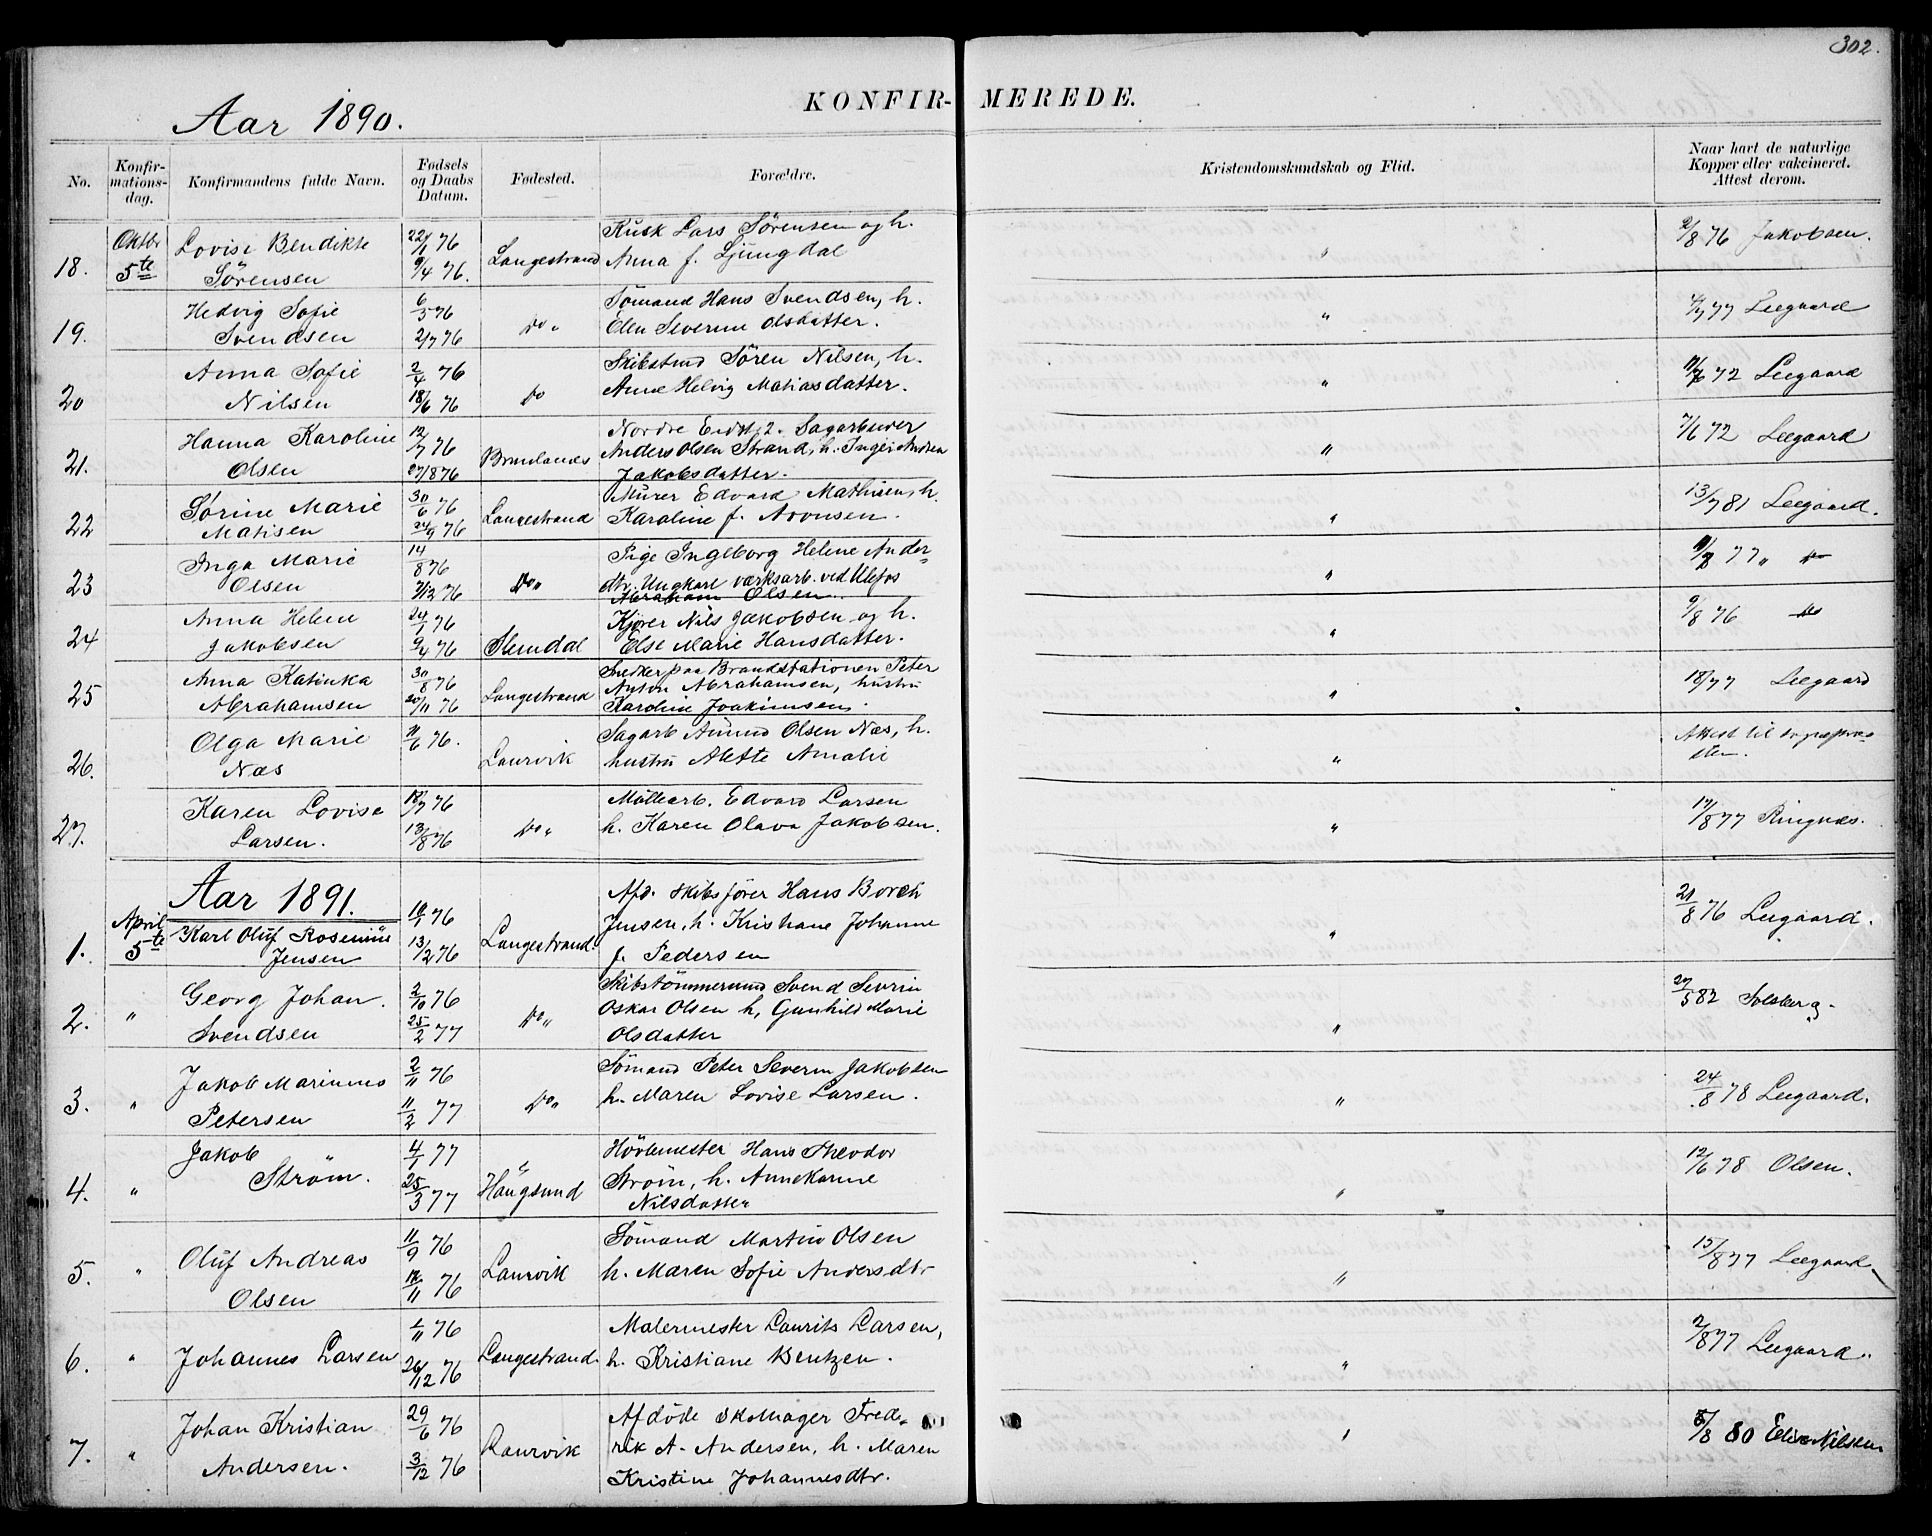 302.
Aar 1890.
KONFIR-MEREDE.
No.
Konfir-
mations-
dag.
Konfirmandens fulde Navn.
Fødsels
og Daabs
Datum.
Fødested.
Forældre.
Kristendomskundskab og Flid.
Naar havt de naturlige
Kopper eller vakcineret.
Attest derom.
18. Oktbr 5te Lovise Bendikte 22/1 76 Langestrand Kusk Lars Sørensen og h. " 2/8 76 Jakobsen.
Sørensen 9/4 76. Anna f. Ljungdal
19. Hedvig Sofie 6/5 76 Do " Sømand Hans Svendsen, h. " 77 Leegaard
Svendsen 2/7 76 Elen Severine Olsdatter.
20 Anna Sofie 2/4 76 Do Søren Nilsen, h. " 72 Leegaard
Nilsen 18/6 76 Anne Helvig Matiasdatter.
21. Hanna Karoline 12/7 76 Nordre 2. Sagarbeider " 7/6 72 Leegaard
Olsen 27/8 76 Anders Olsen Strand, h. Inger
Jakobsdatter.
22 Sørine Marie 30/6 76 Langestrand Murer Edvard Mathisen, h. " 13/7 81 Leegaard.
Matisen 24/9 76 Karoline f. Aronsen.
23 Inga Marie 14/8 76 Do " Pige Ingeborg Helene Ander- " 77 " Do
Olsen 76 dtr. Ungkarl værksarb. ved Ulefos
Abraham Olsen.
24 Anna Helene 24/1 76 Stendal Kjører Nils Jakobsen og h. " 9/8 76 Do
Jakobsen 9/4 76 Else Marie Hansdatter.
25 Anna Katinka 30/8 76 Langestrand Snedker paa Brandstationen Peter " 18/ 77 Leegaard
Abrahamsen 20/11 76 Anton Abrahamsen, hustru
Karoline Joakimsen.
26. Olga Marie 11/6 76. Laurvik Sagarb Olsen Næs, h. " Attest til
Næs hustru Alette Amalie
27. Karen Lovise 76 Do " Møllearb. Edvard Larsen " 17/8 77 Ringnæs.
Larsen. 13/8 76 h. Karen Olava Jakobsen.
Aar 1891.
1. April 5te Karl Oluf Rosenius 10/1 76 Langestrand. Afd. Skibsfører Hans Borch " 21/8 76 Leegaard.
Jensen 13/2 76 Jensen, h. Kristiane Johanne
f. Pedersen
2. " Georg Johan. 2/10 76 Do " Skibstømmermd Svend Sevrin " 27/5 82 Solberg.
Svendsen 25/2 77 Oskar Olsen h, Gunhild Marie
Olsdatter
3. " Jakob Marinius 2/11 76 Do " Sømand Peter Severin Jakobsen " 24/8 78 Leegaard.
Petersen 11/2 77 h. Maren Lovise Larsen.
4. " Jakob 4/1 77 Haugsund Høvlemester Hans Theodor " 12/6 78 Olsen.
Strøm. 25/3 77 Strøm, h. Anne Karine
Nilsdatter
5. " Oluf Andreas 11/9 76 Laurvik Sømand Martin Olsen " 15/8 77 Leegaard
Olsen 12/11 76 h. Maren Sofie Andersdtr
6. " Johannes Larsen 1/11 76 Langestrand. Malermester Laurits Larsen, " 2/8 77 Leegaard.
26/12 76 h. Kristiane Bentzen.
7. " Johan Kristian 29/6 76 Laurvik Afdøde Skomager Fred- " 5/8 80 Nilsen
Andersen. 3/12 76 rik A. Andersen, h. Maren
Kristine Johannesdtr.